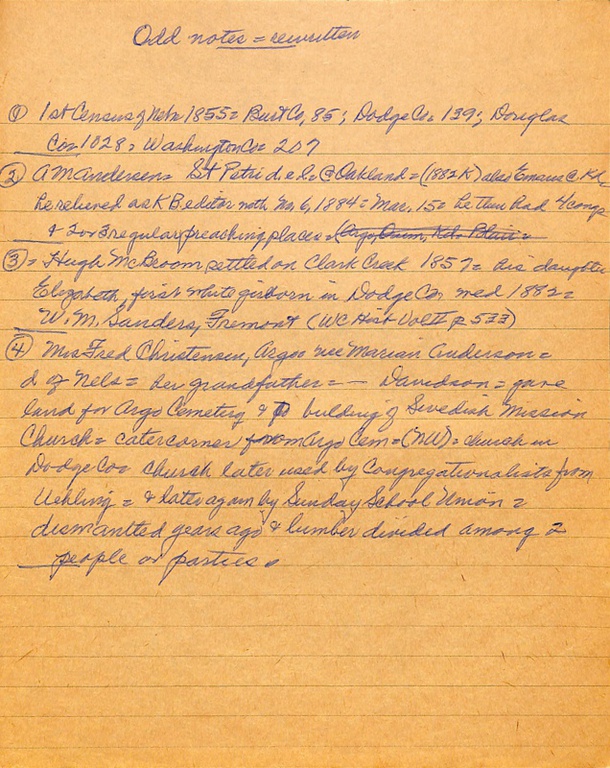 Odd notes = rewritten
① 1st Census of Nebr 1855 = Burt Co, 85; Dodge Co. 139; Douglas
Co = 1028 = Washington Co = 207
② A M Andersen = St Petri d.e.l. @ Oakland = (1882 K) also Emaus @ Kd.
he relieved as K B editor noth No. 6, 1884 = Mar. 15 = he then had 4 cong
& 2 or 3 regular preaching places = (Argo, Orum, Blair =
③ = Hugh McBroom settled on Clark Creek 1857 = his daughter
Elizabeth, first white girl born in Dodge Co. med 1882 =
W. M. Sanders, Fremont (WC Hist Vol II p 533)
④ Mrs Fred Christensen, Argo = nee Marian Anderson =
d of Nels = her grandfather = -- Davidson = gave
land for Argo Cemetery & building of Swedish Mission
Church = catercorner from Argo Cem = (NW) = church in
Dodge Co = church later used by Congregationalists from
Uehling = & later again by Sunday School Union =
dismantled years ago & lumber divided among 2
people or parties.